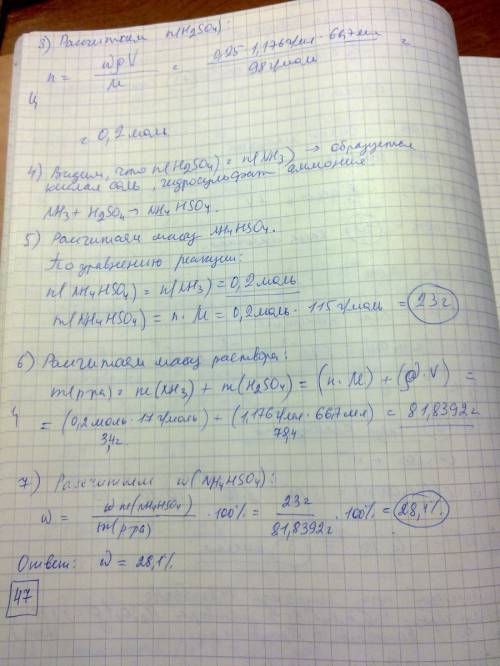 3) Рассчитаем n(H2SO4):
n = wρV / M = 0,25 · 1,176 г/мл · 66,7 мл / 98 г/моль =
= 0,2 моль
4) Видим, что n(H2SO4) = n(NH3) → образуется
кислая соль, гидросульфат аммония
NH3 + H2SO4 → NH4HSO4.
5) Рассчитаем массу NH4HSO4.
По уравнению реакции:
n(NH4HSO4) = n(NH3) = 0,2 моль
m(NH4HSO4) = n · M = 0,2 моль · 115 г/моль = 23 г
6) Рассчитаем массу раствора:
m(р-ра) = m(NH3) + m(H2SO4) = (n · M) + (ρ · V) =
= (0,2 моль · 17 г/моль) + (1,176 г/мл · 66,7 мл) = 81,8392 г
3,4 г 78,4
7) Рассчитаем w(NH4HSO4):
w = m(NH4HSO4) / m(р-ра) · 100% = 23 г / 81,8392 г · 100% = 28,1%
Ответ: w = 28,1%.
47